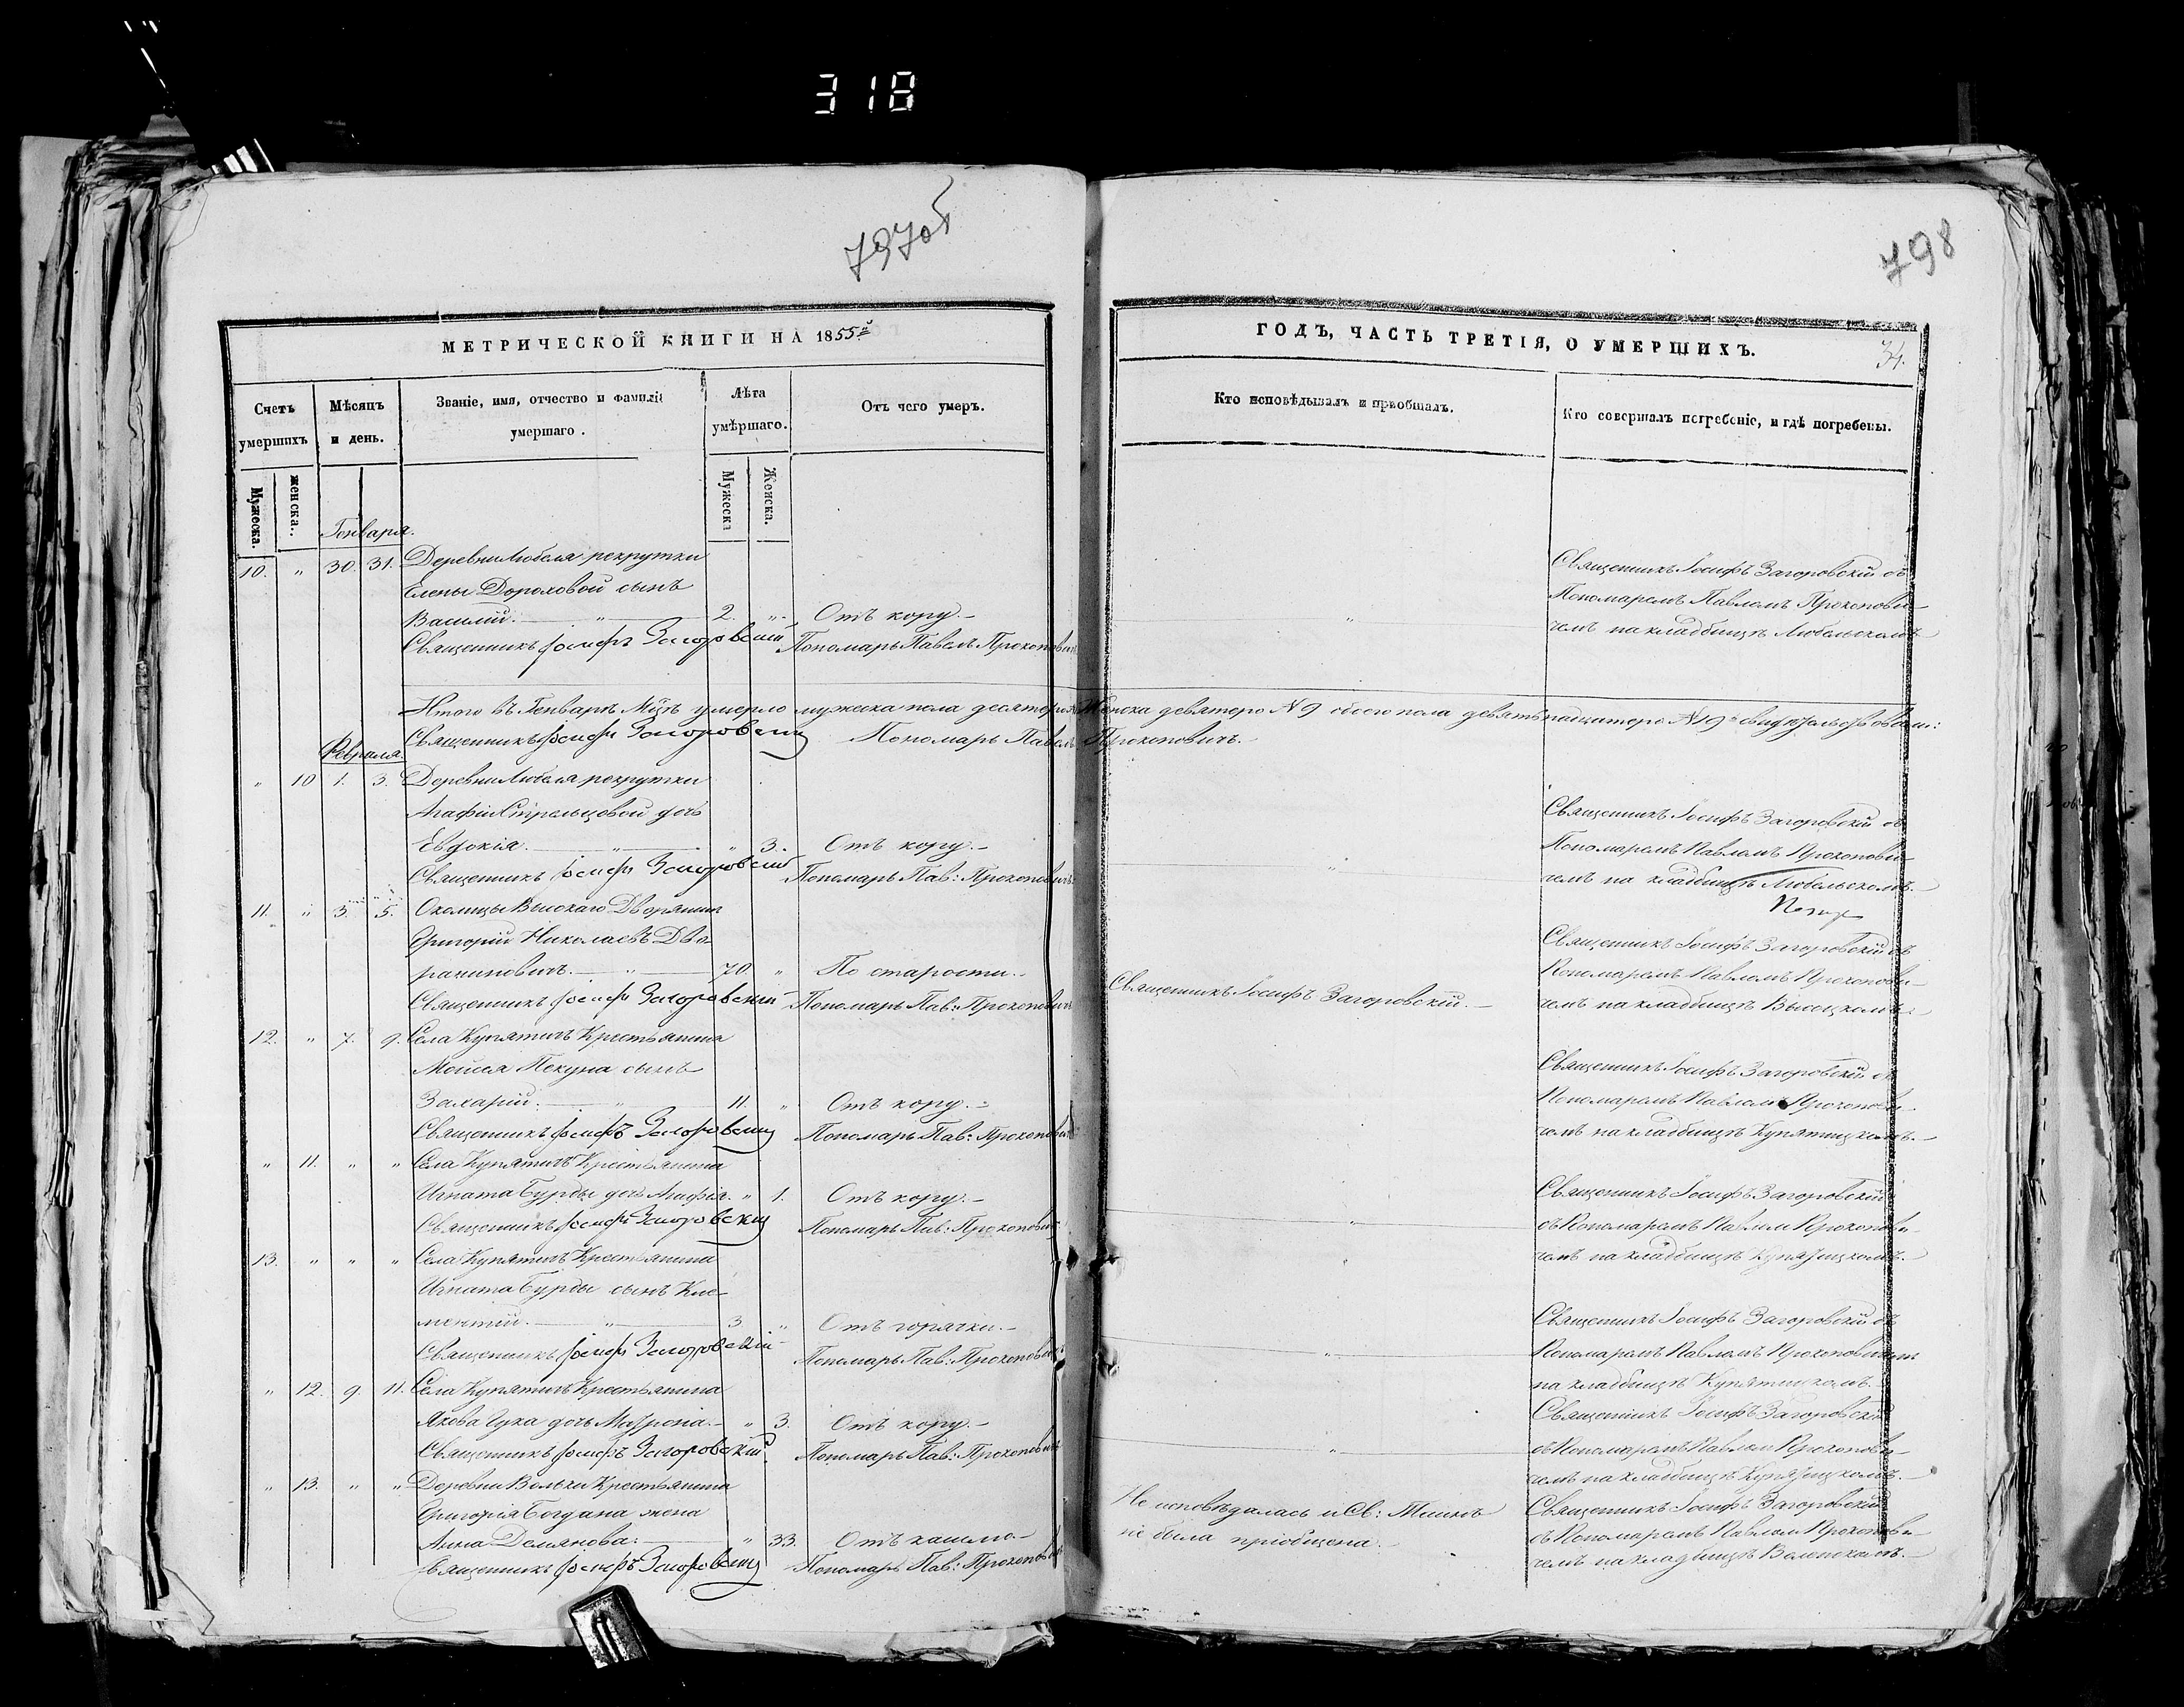 318
797об
798
МЕТРИЧЕСКОЙ КНИГИ НА 1855й
ГОДЪ, ЧАСТЬ ТРЕТІЯ, О УМЕРШИХЪ.
34.
Счетъ умершихъ
Мѣсяцъ и день.
Званіе, имя, отчество и фамилія умершаго.
Лѣта умѣршаго.
Отъ чего умеръ.
Кто исповѣдывалъ и пріобщалъ.
Кто совершалъ погребеніе, и гдѣ погребены.
Мужеска.
женска.
Мужеска
Женска.
Генваря.
10. " 30. 31. Деревни Любеля рекрутки
Елены Дороховой сынъ
Василій. " 2. " Отъ кору.
Священникъ Іосифъ Загоровскій Пономарь Павелъ Прокоповичъ
"
Священникъ Іосифъ Загоровскій съ
Пономаремъ Павломъ Прокопови-
чемъ на кладбищѣ Любельскомъ
Итого въ Генварѣ Мцѣ умерло мужеска пола десятеро Женска девятеро N 9 обоего пола девятьнадцатеро N 19 свидѣтельствовали:
Священникъ Іосифъ Загоровскій Пономарь Павелъ Прокоповичъ.
Февраля.
" 10 1. 3. Деревни Любеля рекрутки
Агафіи Стрельцовой дочь
Евдокія. " " 3. Отъ кору.
Священникъ Іосифъ Загоровскій Пономарь Пав: Прокоповичъ.
"
Священникъ Іосифъ Загоровскій съ
Пономаремъ Павломъ Прокопови-
чемъ на кладбищѣ Любельскомъ.
11. " 3. 5. Околицы Высокаго Дворянинъ
Григорій Николаевъ Дво-
раниновичъ. " 70. " По старости.
Священникъ Іосифъ Загоровскій Пономарь Пав: Прокоповичъ
Священникъ Іосифъ Загоровскій.
Священникъ Іосифъ Загоровскій съ
Пономаремъ Павломъ Прокопови-
чемъ на кладбищѣ Высоцкомъ.
12. " 7. 9. Села Купятичъ Крестьянина
Моисея Пекуна сынъ
Захарій. " 11. " Отъ кору.
Священникъ Іосифъ Загоровскій Пономарь Пав: Прокоповичъ
Священникъ Іосифъ Загоровскій съ
Пономаремъ Павломъ Прокопови-
чемъ на кладбищѣ Купятицкомъ.
" 11. " " Села Купятичъ Крестьянина
Игната Бурды дочь Агафія. " 1. Отъ кору.
Священникъ Іосифъ Загоровскій Пономарь Пав: Прокоповичъ
"
Священникъ Іосифъ Загоровскій
съ Пономаремъ Павлом Прокопови-
чемъ на кладбищѣ Купятицкомъ.
13. " " " Села Купятичъ Крестьянина
Игната Бурды сынъ Кле-
ментій. " 3 " Отъ горячки.
Священникъ Іосифъ Загоровскій Пономарь Пав: Прокоповичъ
"
Священникъ Іосифъ Загоровскій съ
Пономаремъ Павломъ Прокоповичемъ
на кладбищѣ Купятицкомъ.
" 12. 9. 11. Села Купятичъ Крестьянина
Якова Цука дочь Матрона. " 3. Отъ кору.
Священникъ Іосифъ Загоровскій Пономарь Пав: Прокоповичъ
"
Священникъ Іосифъ Загоровскій
съ Пономаремъ Павлом Прокопови-
чемъ на кладбищѣ Купятицкомъ.
" 13. " " Деревни Вольки Крестьянина
Григорія Богдана жена
Анна Демянова: " 33. Отъ кашлю.
Священникъ Іосифъ Загоровскій Пономарь Пав: Прокоповичъ
Не исповѣдалась и Св: Таинъ
не была пріобщена.
Священникъ Іосифъ Загоровскій
съ Пономаремъ Павлом Прокопови-
чемъ на кладбищѣ